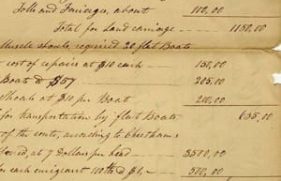 Tolls and Ferriages, about 100,00
Total for Land carriage 1150,00
Muscle shoals required 20 flat Boats
cost of repairs at $10 each 150,00
Boat $57 285,00
Shoals at $10 per Boat 200,00
for transportation by flat Boats 635,00
of the route, according to Cheatham's
at 7 dollars per head 3500,00
for each emigrant 500,00